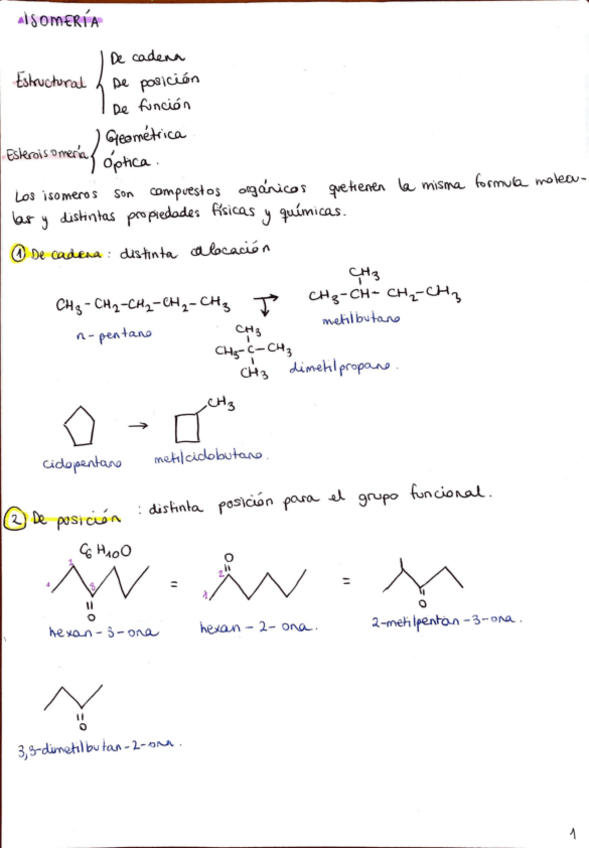 ISOMERÍA
Estructural
De cadena
De posición
De función
Esteroisomería
Geométrica
Óptica.
Los isomeros son compuestos orgánicos quetienen la misma formula molecu-
lar y distintas propiedades físicas y químicas.
1 De cadena: distinta colocación
CH3
CH3-CH2-CH2-CH2-CH3
CH3-CH-CH2-CH3
n-pentano
metilbutano
CH3
CH3-C-CH3
CH3
dimetilpropano.
CH3
ciclopentano
metilciclobutano.
2 De posición : distinta posición para el grupo funcional.
C6H10O
O
2
1
3
=
2
1
=
O
O
hexan-3-ona
hexan-2-ona.
2-metilpentan-3-ona.
O
3,3-dimetilbutan-2-ona.
1